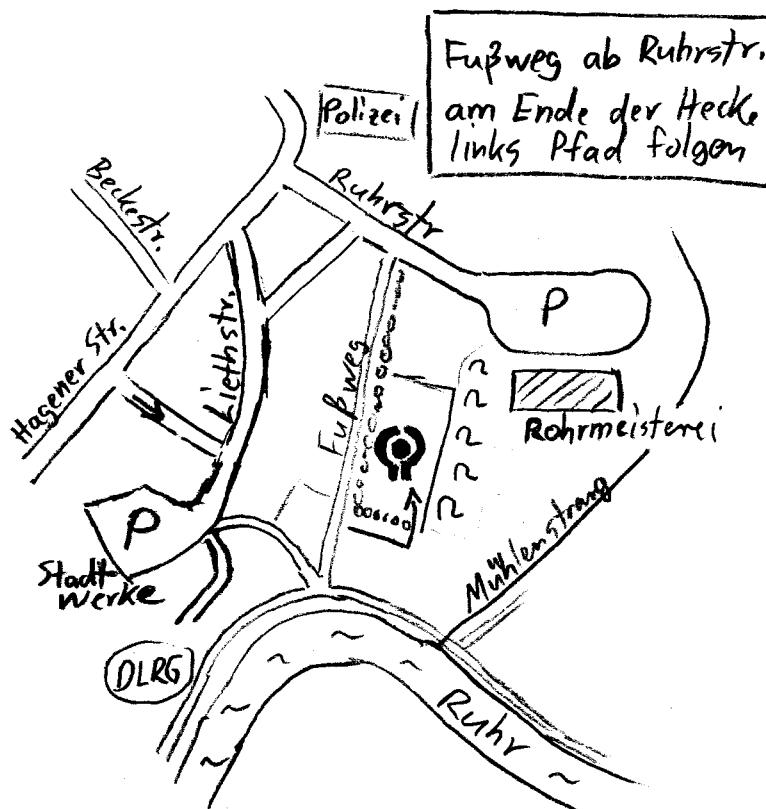 Fußweg ab Ruhrstr.
am Ende der Hecke
links Pfad folgen
Polizei
Beckestr.
Ruhrstr
P
Liethstr.
Hagener Str.
Fußweg
Rohrmeisterei
P
Stadt-
werke
Mühlenstrang
DLRG
Ruhr